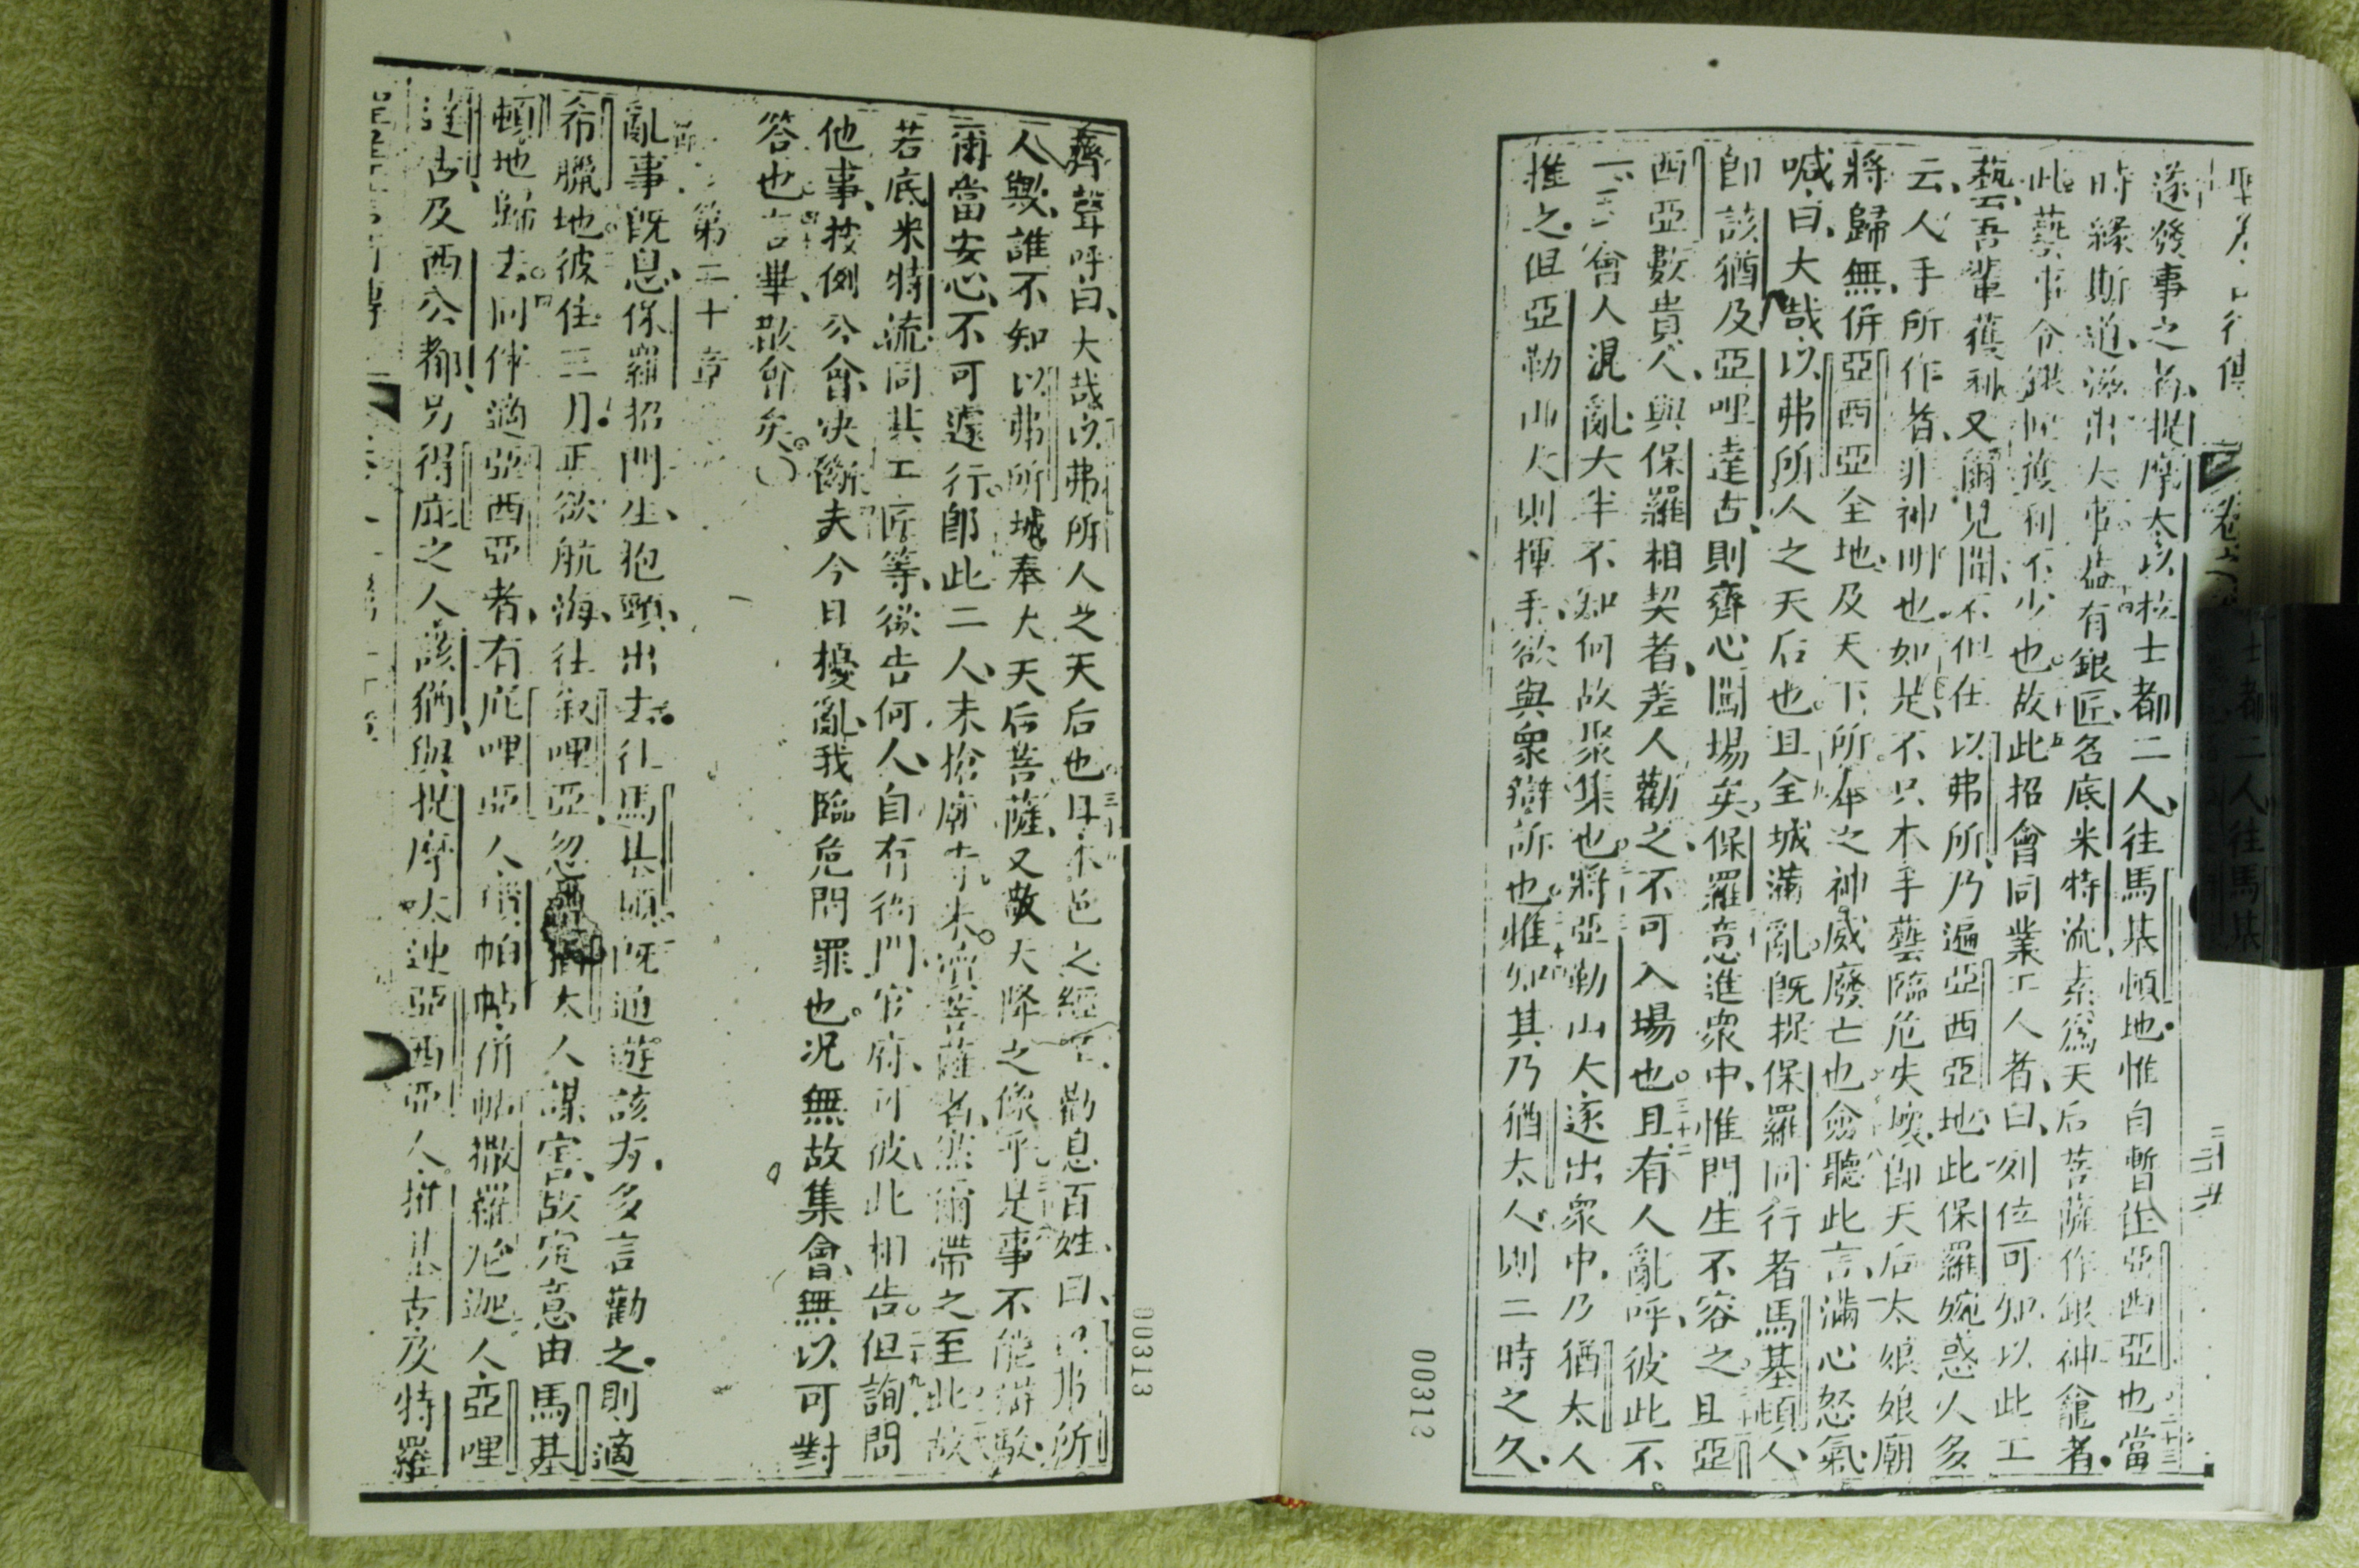 遂發事之者提摩太以拉士都二人往馬其頓地惟自暫住亞西亞也當
時緣斯道滋出大事蓋有銀匠名底米特流素為天后菩薩作銀神龕者
此藝事令銀匠獲利不少也故此招會同業工人者曰列位可知以此工
藝吾輩獲利又爾見聞不但在以弗所乃遍亞西亞地此保羅婉惑人多
云人手所作者非神明也如是不只本手藝臨危失壞即天后太娘娘廟
將歸無併亞西亞全地及天下所奉之神威廢亡也僉聽此言滿心怒氣
喊曰大哉以弗所人之天后也且全城滿亂既捉保羅同行者馬基頓人
即該猶及亞哩達古則齊心闖場矣保羅意進眾中惟門生不容之且亞
西亞數貴人與保羅相契者差人勸之不可入場也且有人亂呼彼此不
一會人混亂大半不知何故聚集也將亞勒山大遂出眾中乃猶太人
推之但亞勒山大則揮手欲與眾辯訴也惟知其乃猶太人則二時之久
00312
齊聲呼曰大哉以弗所人之天后也且本邑之經 勸息百姓曰以弗所
人歟誰不知以弗所城奉大天后菩薩又敬天降之像乎是事不能辯駁
爾當安心不可遽行即此二人未搶廟寺未瀆菩薩者然爾帶之至此故
若底米特流同其工匠等欲告何人自有衙門官府可彼此相告但詢問
他事按例公會決斷夫今日擾亂我臨危問罪也況無故集會無以可對
答也言畢散會矣
第二十章
亂事既息保羅招門生抱頸出去往馬其頓既逈遊該方多言勸之則適
希臘地彼住三月正欲航海往叙哩亞忽 太人謀害故定意由馬基
頓地歸去同伴適亞西亞者有庇哩亞人 帕帖併帖撒羅尼迦人亞哩
達古及西公都另得庇之人該猶與提摩太連亞西亞人推其古及特羅
00313